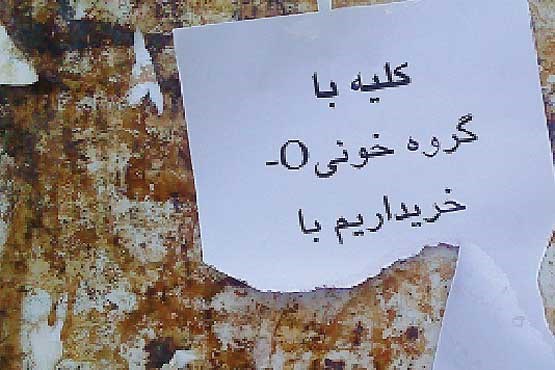 کلیه با
گروه خونی O-
خریداریم با